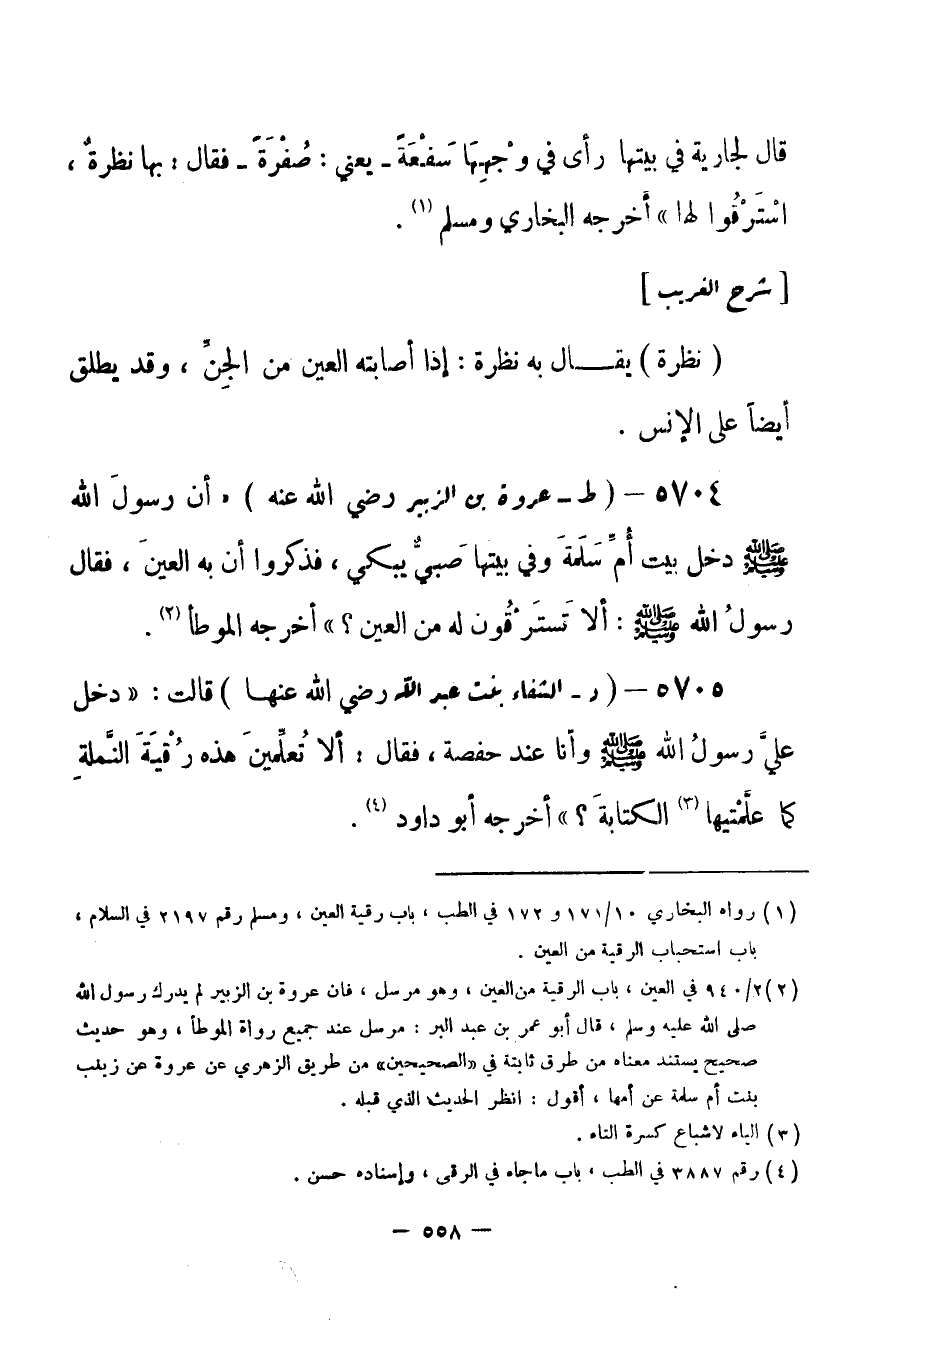 قال لجارية في بيتها رأى في وَجْهِهَا سَفْعَةً ـ يعني : صُفْرَةً ـ فقال : بها نظرةٌ ،
اسْتَرْقُوا لها » أخرجه البخاري ومسلم (١) .
[ شرح الغريب ]
( نظرة ) يقـــال به نظرة : إذا أصابته العين من الجنِّ ، وقد يطلق
أيضاً على الإنس .
٥٧٠٤ – ( ط ـ عروة بن الزبير رضي الله عنه ) « أن رسولَ الله
ﷺ دخل بيت أُمِّ سَلَمَةَ وفي بيتها صَبيٌّ يبكي ، فذكروا أن به العينَ ، فقال
رسولُ الله ﷺ : ألا تَستَرْقُون له من العين ؟ » أخرجه الموطأ (٢) .
٥٧٠٥ – ( د ـ الشفاء بنت عبد الله رضي الله عنهـا ) قالت : « دخل
عليَّ رسولُ الله ﷺ وأنا عند حفصة ، فقال : ألا تُعلِّمينَ هذه رُقْيَةَ النَّملةِ
كما علَّمْتيها (٣) الكتابةَ ؟ » أخرجه أبو داود (٤) .
(١) رواه البخاري ١٧١/١٠ و ١٧٢ في الطب ، باب رقية العين ، ومسلم رقم ٢١٩٧ في السلام ،
باب استحباب الرقية من العين .
(٢) ٩٤٠/٢ في العين ، باب الرقية من العين ، وهو مرسل ، فان عروة بن الزبير لم يدرك رسول الله
صلى الله عليه وسلم ، قال أبو عمر بن عبد البر : مرسل عند جميع رواة الموطأ ، وهو حديث
صحيح يستند معناه من طرق ثابتة في «الصحيحين» من طريق الزهري عن عروة عن زينب
بنت أم سلمة عن أمها ، أقول : انظر الحديث الذي قبله .
(٣) الياء لاشباع كسرة التاء .
(٤) رقم ٣٨٨٧ في الطب ، باب ماجاء في الرقى ، وإسناده حسن .
— ٥٥٨ —